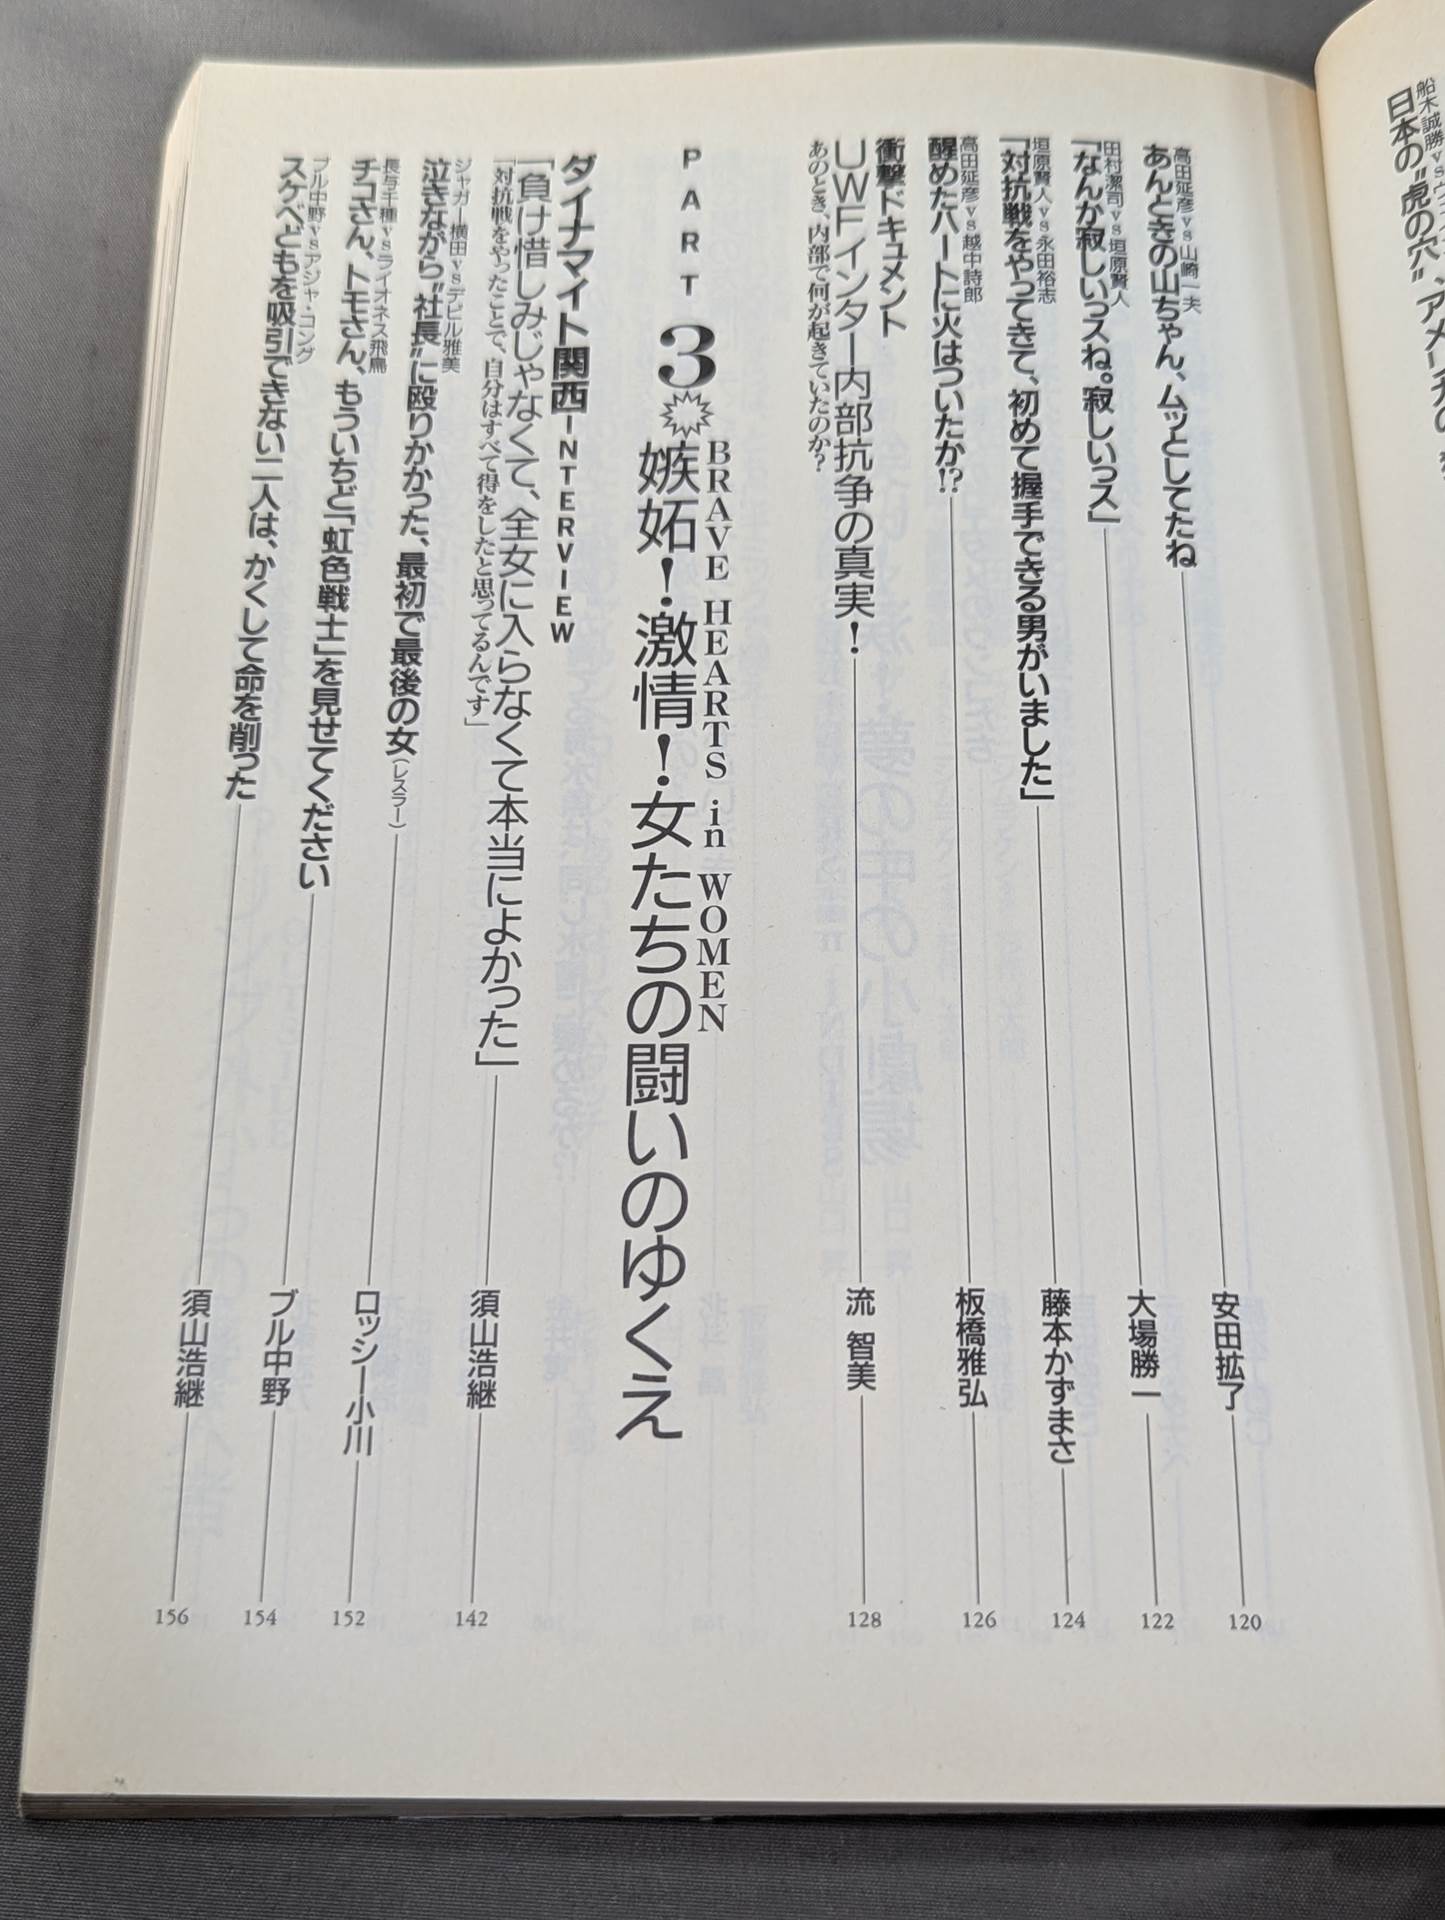 船木誠勝vsウ
日本の“虎の穴”、アメリカの
高田延彦vs山崎一夫
あんときの山ちゃん、ムッとしてたね
安田拡了
120
田村潔司vs垣原賢人
「なんか寂しいっスね。寂しいっス」
大場勝一
122
垣原賢人vs永田裕志
「対抗戦をやってきて、初めて握手できる男がいました」
藤本かずまさ
124
高田延彦vs越中詩郎
醒めたハートに火はついたか!?
板橋雅弘
126
衝撃ドキュメント
UWFインター内部抗争の真実！
あのとき、内部で何が起きていたのか？
流 智美
128
PART3
BRAVE HEARTS in WOMEN
嫉妬！激情！女たちの闘いのゆくえ
ダイナマイト関西INTERVIEW
「負け惜しみじゃなくて、全女に入らなくて本当によかった」
「対抗戦をやったことで、自分はすべて得をしたと思ってるんです」
須山浩継
142
ジャガー横田vsデビル雅美
泣きながら“社長”に殴りかかった、最初で最後の女（レスラー）
ロッシー小川
152
長与千種vsライオネス飛鳥
チコさん、トモさん、もういちど「虹色戦士」を見せてください
ブル中野
154
ブル中野vsアジャ・コング
スケベどもを吸引できない二人は、かくして命を削った
須山浩継
156